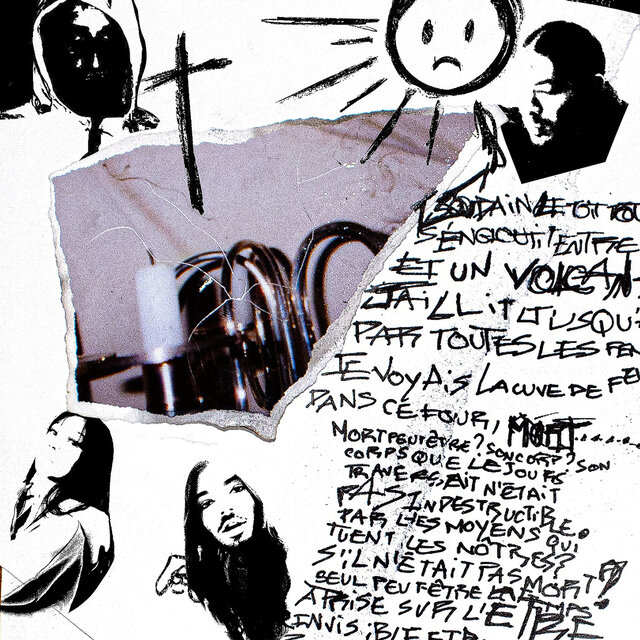 SOUDAIN LE TOIT TOUT
S'ENGLOUTIT ENTRE
ET UN VOLCAN
JAILLIT JUSQU'
PAR TOUTES LES FEN
JE VOYAIS LA CUVE DE FE
DANS CE FOUR, MORT......
MORT PEUT ÊTRE? SON CORP? SON
CORPS QUE LE JOUR
TRAVERSAIT N'ÉTAIT
PAS INDESTRUCTIBLE
PAR LES MOYENS QUI
TUENT LES NÔTRES?
S'IL N'ÉTAIT PAS MORT?
SEUL PEUT ÊTRE LE TEMPS
A PRISE SUR L'ÊTRE
INVISIBLE ET R